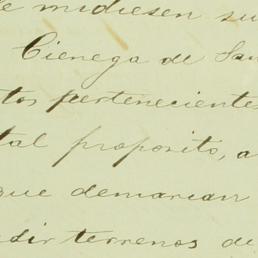 midiesen su
Cienega de San
tos pertenecientes
tal proposito, a
que demarcan
dir terrenos de